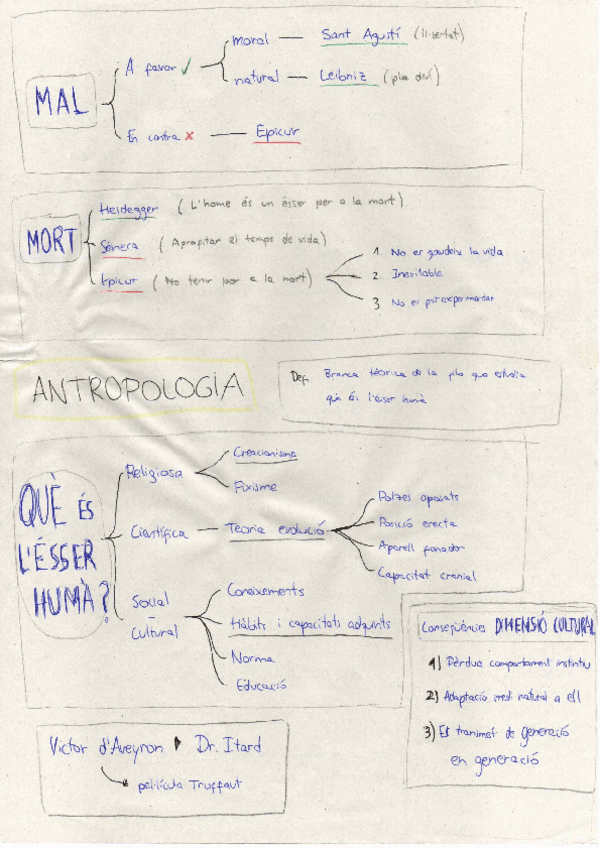 MAL
A favor ✓
moral — Sant Agustí (llibertat)
natural — Leibniz (pla diví)
En contra x — Epicur
MORT
Heidegger (L'home és un ésser per a la mort)
Sèneca (Aprofitar el temps de vida)
Epicur (No tenir por a la mort)
1. No es gaudeix la vida
2. Inevitable
3 No es pot experimentar
ANTROPOLOGIA
Def. Branca teòrica de la que estudia
què és l'ésser humà
QUÈ ÉS
L'ÉSSER
HUMÀ?
Religiosa
Creacionisme
Fixisme
Científica — Teoria evolució
Polzes oposats
Posició erecta
Aparell fonador
Capacitat cranial
Social
-
Cultural
Coneixements
Hàbits i capacitats adquirits
Norma
Educació
Conseqüències DIMENSIÓ CULTURAL
1) Pèrdua comportament instintiu
2) Adaptació medi natural a ell
3) Es transmet de generació
en generació
Victor d'Aveyron Dr. Itard
pel·lícula Truffaut